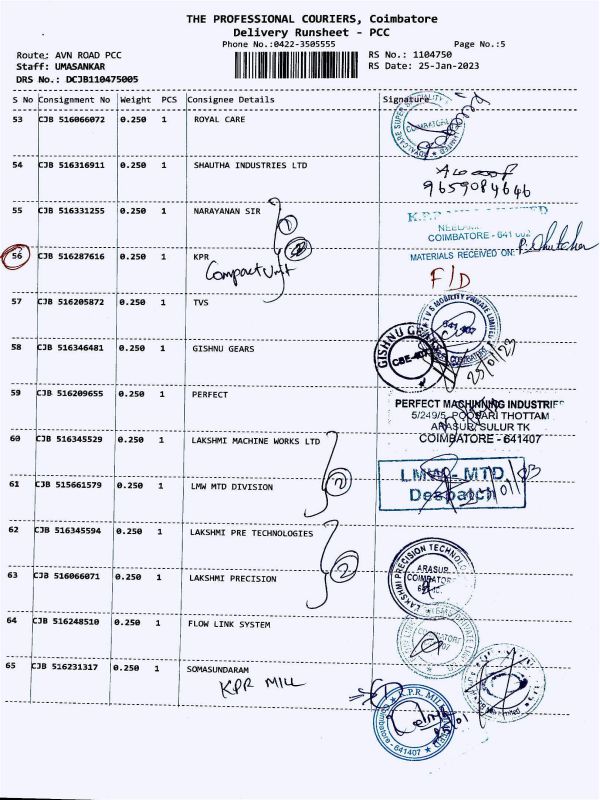 THE PROFESSIONAL COURIERS, Coimbatore
Delivery Runsheet - PCC
Phone No.:0422-3505555 Page No.:5
Route: AVN ROAD PCC RS No.: 1104750
Staff: UMASANKAR RS Date: 25-Jan-2023
DRS No.: DCJB110475005
S No Consignment No Weight PCS Consignee Details Signature
53 CJB 516066072 0.250 1 ROYAL CARE
COIMBATORE
54 CJB 516316911 0.250 1 SHAUTHA INDUSTRIES LTD
9659084646
55 CJB 516331255 0.250 1 NARAYANAN SIR
1
K.P.R
COIMBATORE - 641 002
56 CJB 516287616 0.250 1 KPR
MATERIALS RECEIVED ON:
Compact Unit
F/D
57 CJB 516205872 0.250 1 TVS
TVS MOBILITY PRIVATE LIMITED
641 407
58 CJB 516346481 0.250 1 GISHNU GEARS
GISHNU GEARS
CBE-407
25/01/23
59 CJB 516209655 0.250 1 PERFECT
PERFECT MACHINNING INDUSTRIES
5/249/5, POOSARI THOTTAM
ARASUR, SULUR TK
COIMBATORE - 641407
60 CJB 516345529 0.250 1 LAKSHMI MACHINE WORKS LTD
61 CJB 515661579 0.250 1 LMW MTD DIVISION
2
LMW-MTD.
Despatch
62 CJB 516345594 0.250 1 LAKSHMI PRE TECHNOLOGIES
2
63 CJB 516066071 0.250 1 LAKSHMI PRECISION
LAKSHMI PRECISION TECHNOLO
ARASUR,
COIMBATORE
64 CJB 516248510 0.250 1 FLOW LINK SYSTEM
COIMBATORE
65 CJB 516231317 0.250 1 SOMASUNDARAM
KPR MILL
K.P.R. MILL
Coimbatore - 641407